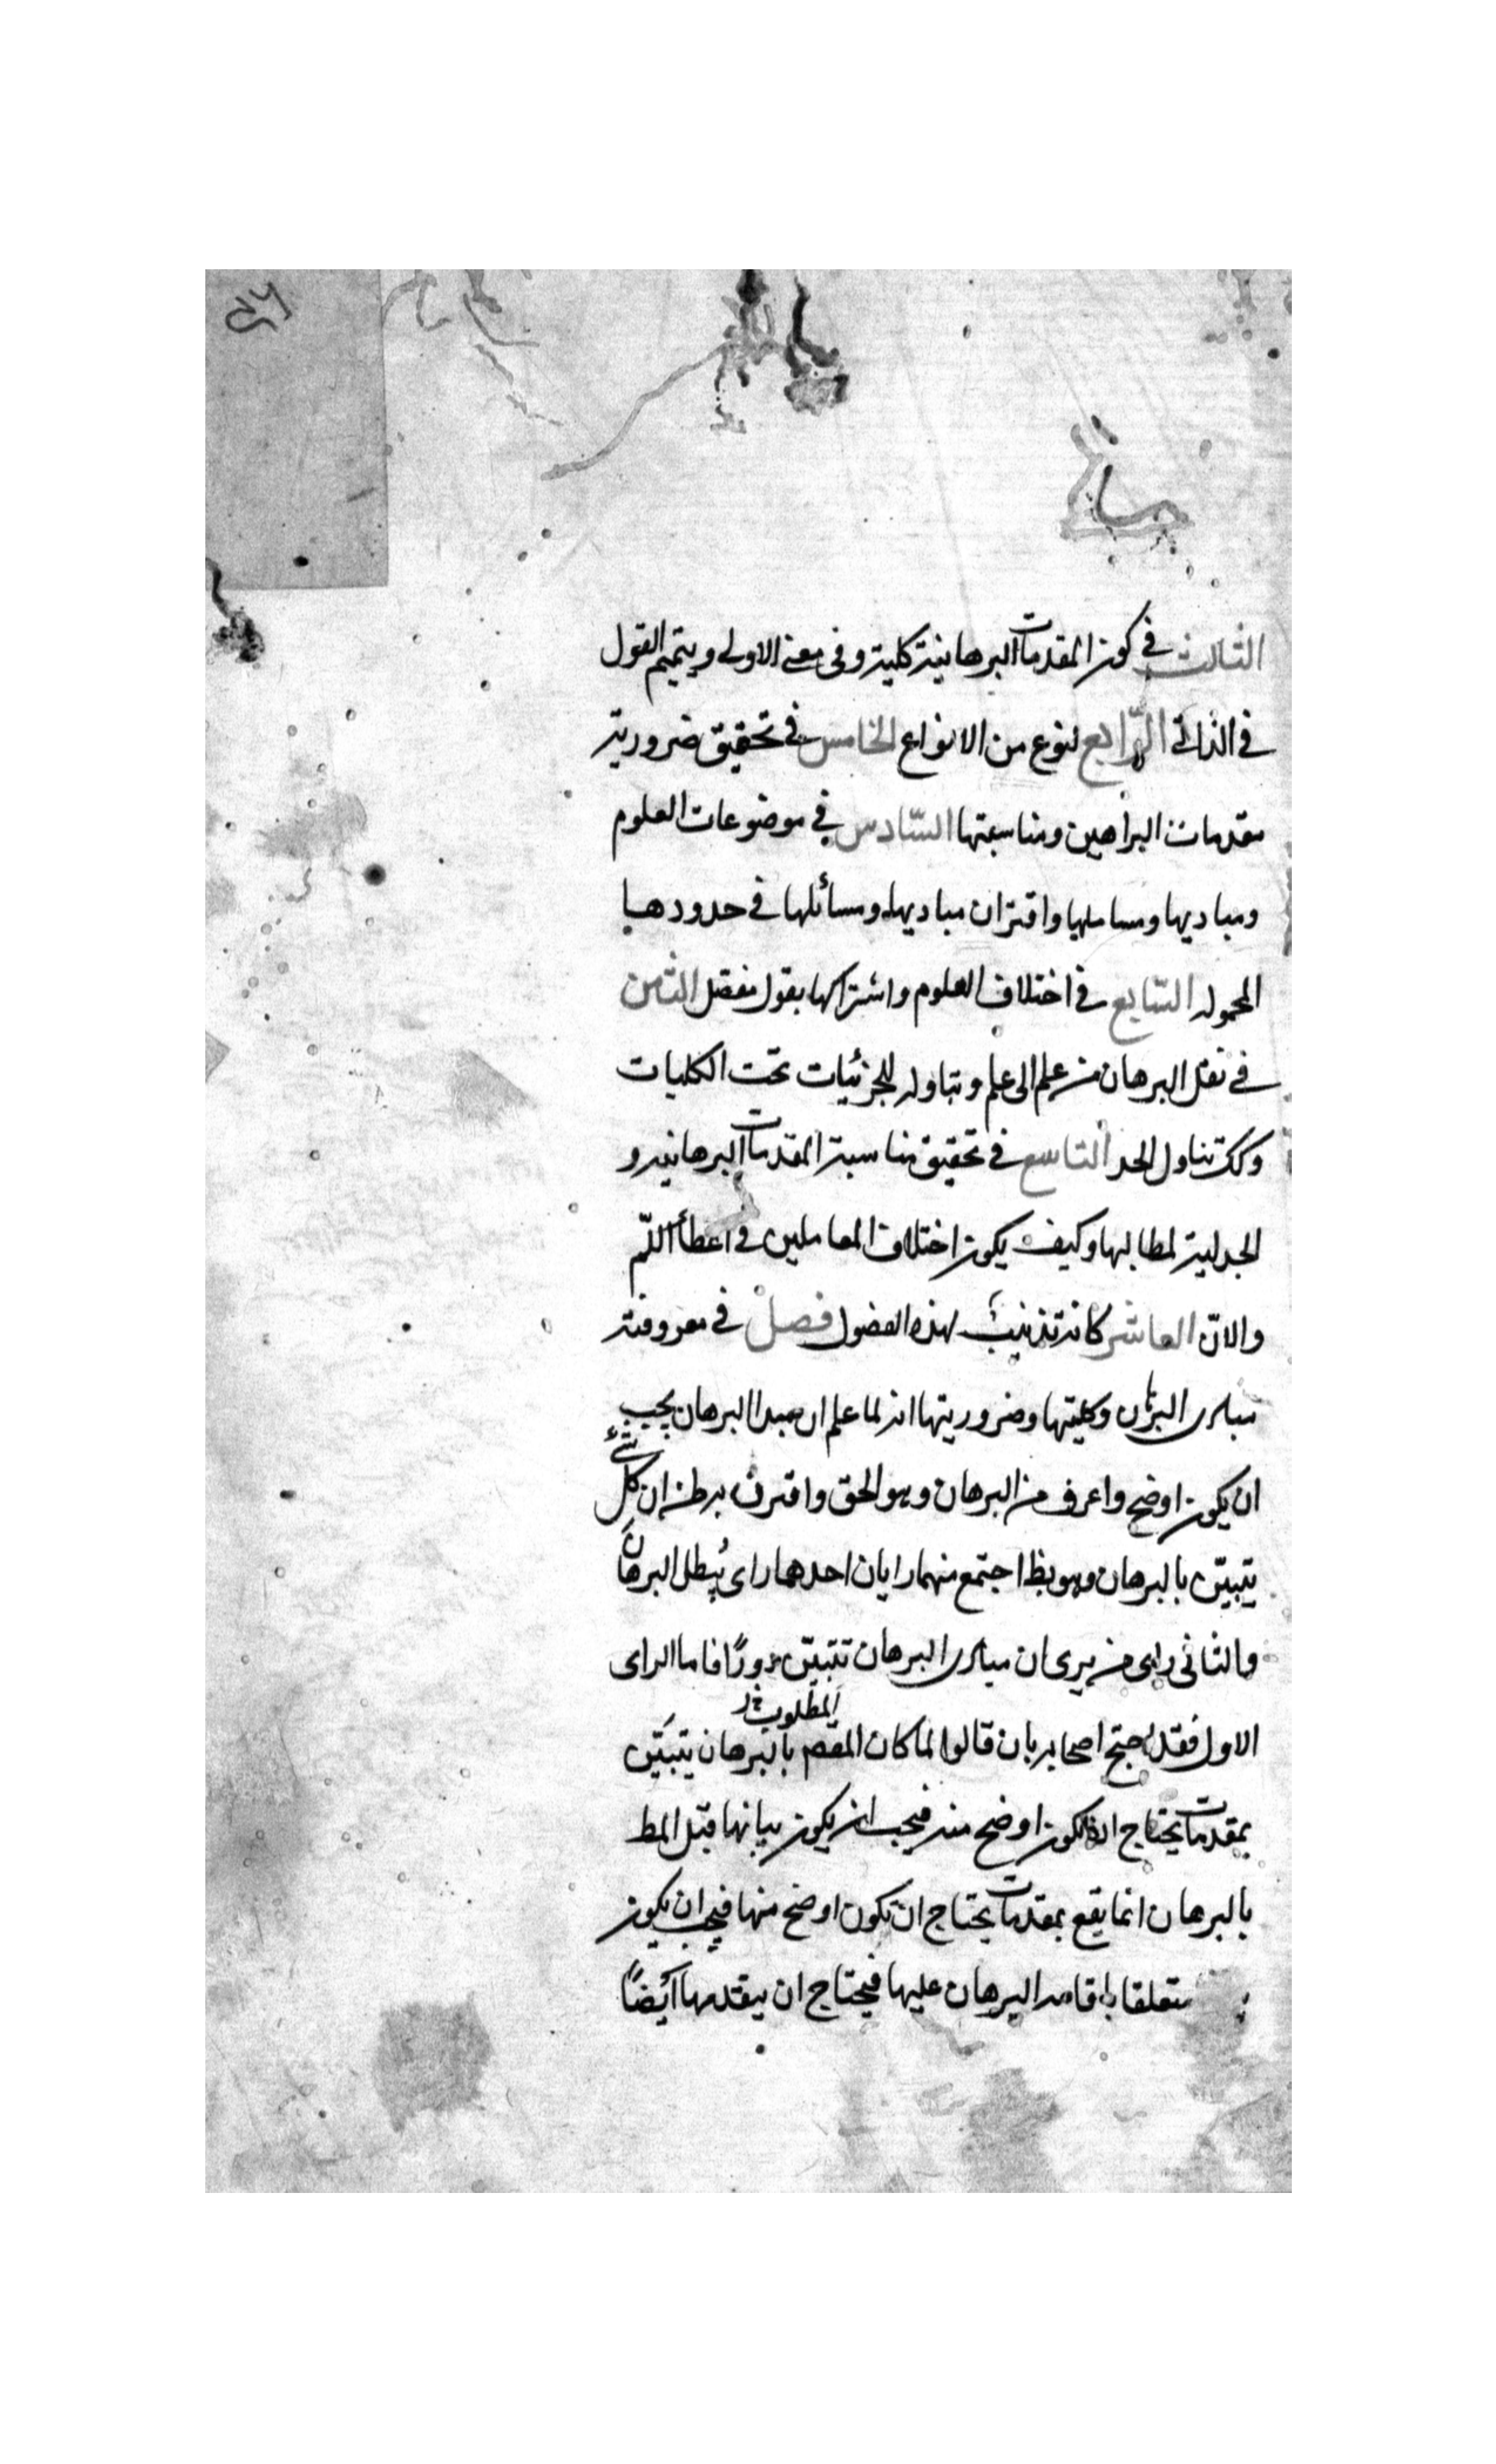 الثالث في كون المقدمات البرهانية كلية وفي معنى الاولى ويتميم القول
في الذاتي الرّابع لنوع من الانواع الخامس في تحقيق ضرورية
مقدمات البراهين ومناسبتها السّادس في موضوعات العلوم
ومباديها ومسايلها واقتران مباديها ومسائلها في حدودها
المحموله السّابع في اختلاف العلوم واشتراكها بقول مفصّل الثّامن
في نقل البرهان من علم الى علم وتناوله للجزئيات تحت الكليات
وكك تناول الحد التاسع في تحقيق مناسبة المقدمات البرهانيه و
الجدلية لمطالبها وكيف يكون اختلاف العاملين في اعطأ اللّم
والانّ العاشر كانه تذنيب لهذه الفصول فصل في معروفية
مبادى البرهان وكليتها وضروريتها انه لما علم ان مبدا البرهان يجب
ان يكون اوضح واعرف من البرهان وهو الحق واقترن به ظن ان كل شئ
يتبيّن بالبرهان وهو بط اجتمع منهما رايان احدهما راى يُبطل البرهان
والثانى راى من يرى ان مبادى البرهان تتبيّن دورًا فاما الراى
الاول فقد احتج اصحابه بان قالوا لما كان المطلوب بالبرهان يتبيّن
بمقدمات يحتاج ان تكون اوضح منه فيجب ان يكون بيانها قبل المط
بالبرهان انما يقع بمقدمات يحتاج ان تكون اوضح منها فيجب ان يكون
متعلقا باقامه البرهان عليها فيحتاج ان يتقدمها ايضًا